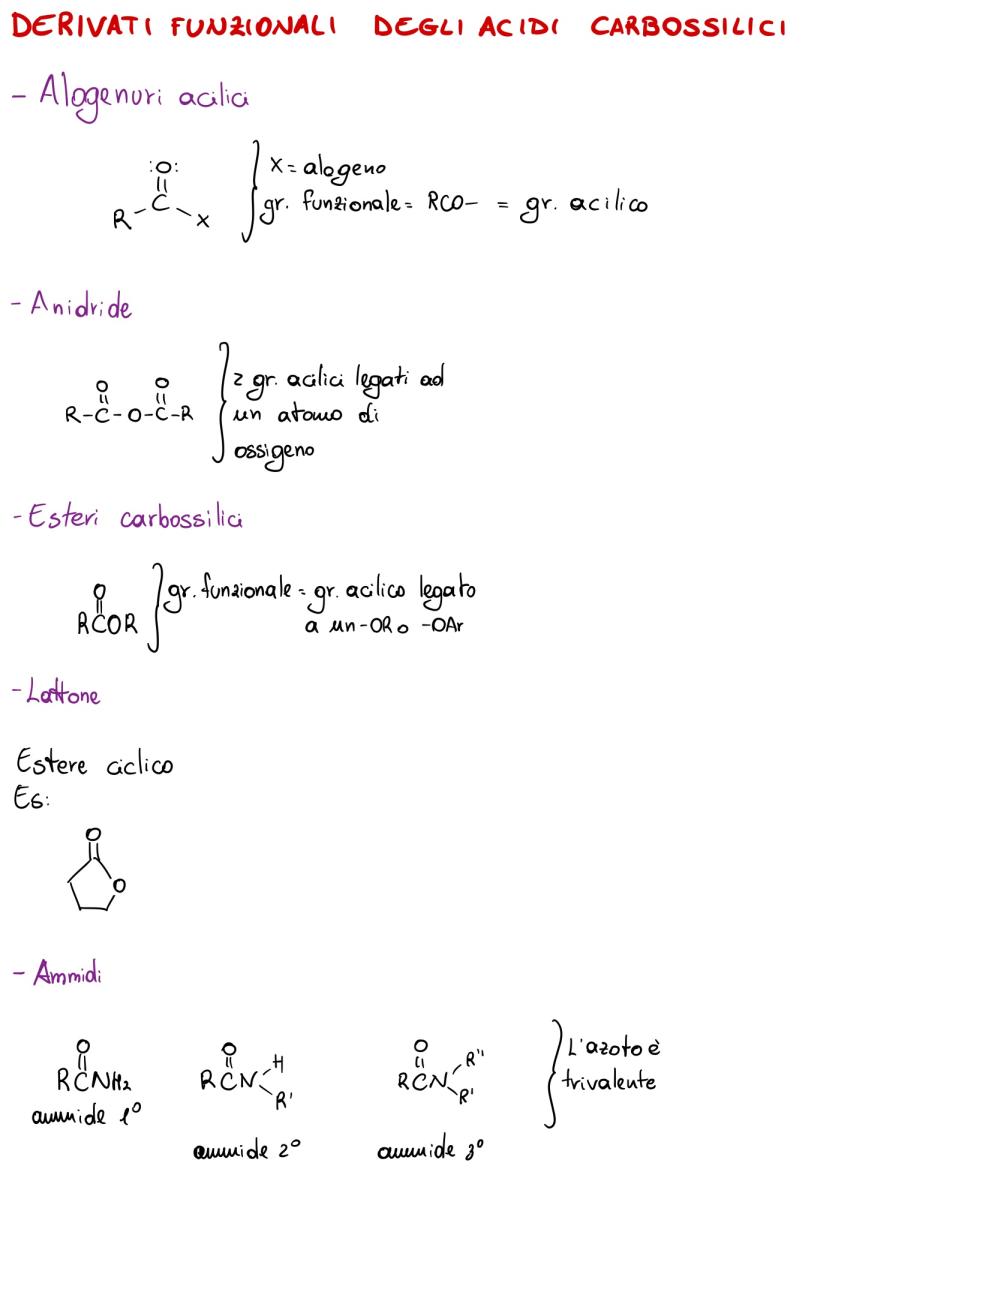 DERIVATI FUNZIONALI DEGLI ACIDI CARBOSSILICI
- Alogenuri acilici
:O:
||
C
R
X
X = alogeno
gr. funzionale = RCO- = gr. acilico
- Anidride
O O
|| ||
R-C-O-C-R
2 gr. acilici legati ad
un atomo di
ossigeno
- Esteri carbossilici
O
||
RCOR
gr. funzionale = gr. acilico legato
a un -OR o -OAr
- Lattone
Estere ciclico
Es:
O
O
- Ammidi
O
||
RCNH2
ammide 1°
O
||
RCN
H
R'
ammide 2°
O
||
RCN
R''
R'
ammide 3°
L'azoto è
trivalente